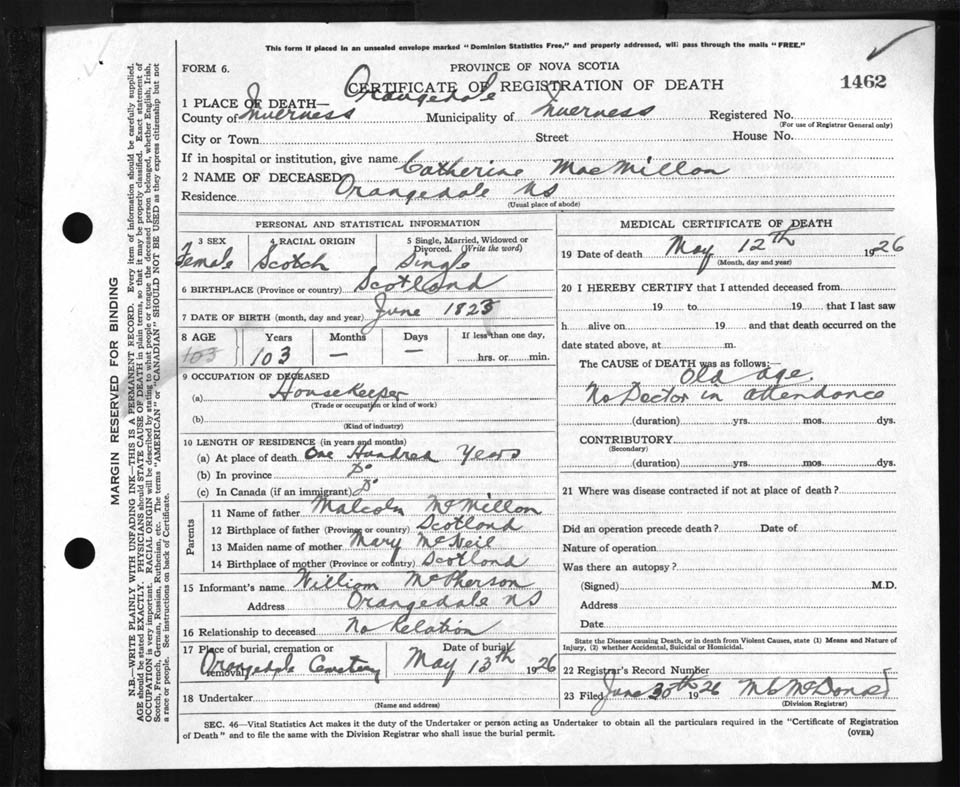 This form if placed in an unsealed envelope marked "Dominion Statistics Free," and properly addressed, will pass through the mails "FREE."
FORM 6.
PROVINCE OF NOVA SCOTIA
CERTIFICATE OF REGISTRATION OF DEATH
1462
1 PLACE OF DEATH— Orangedale
County of Inverness Municipality of Inverness Registered No.
(For use of Registrar General only)
City or Town Street House No.
If in hospital or institution, give name
2 NAME OF DECEASED Catherine MacMillan
Residence Orangedale NS
(Usual place of abode)
PERSONAL AND STATISTICAL INFORMATION
3 SEX Female
4 RACIAL ORIGIN Scotch
5 Single, Married, Widowed or Divorced. (Write the word) Single
6 BIRTHPLACE (Province or country) Scotland
7 DATE OF BIRTH (month, day and year) June 1823
8 AGE Years Months Days If less than one day,
103 103 — — hrs. or min.
9 OCCUPATION OF DECEASED
(a) Housekeeper
(Trade or occupation or kind of work)
(b)
(Kind of industry)
10 LENGTH OF RESIDENCE (in years and months)
(a) At place of death One Hundred Years
(b) In province Do
(c) In Canada (if an immigrant) Do
Parents
11 Name of father Malcolm McMillan
12 Birthplace of father (Province or country) Scotland
13 Maiden name of mother Mary McNeil
14 Birthplace of mother (Province or country) Scotland
15 Informant's name William McPherson
Address Orangedale NS
16 Relationship to deceased No Relation
17 Place of burial, cremation or removal Orangedale Cemetery
Date of burial May 13th 1926
18 Undertaker
(Name and address)
MEDICAL CERTIFICATE OF DEATH
19 Date of death May 12th 1926
(Month, day and year)
20 I HEREBY CERTIFY that I attended deceased from
19 to 19 that I last saw
h alive on 19 and that death occurred on the
date stated above, at m.
The CAUSE of DEATH was as follows:
Old age.
No Doctor in attendance
(duration) yrs. mos. dys.
CONTRIBUTORY
(Secondary)
(duration) yrs. mos. dys.
21 Where was disease contracted if not at place of death?
Did an operation precede death? Date of
Nature of operation
Was there an autopsy?
(Signed) M.D.
Address
Date
State the Disease causing Death, or in death from Violent Causes, state (1) Means and Nature of
Injury, (2) whether Accidental, Suicidal or Homicidal.
22 Registrar's Record Number
23 Filed June 30th 1926
(Division Registrar)
SEC. 46—Vital Statistics Act makes it the duty of the Undertaker or person acting as Undertaker to obtain all the particulars required in the "Certificate of Registration
of Death" and to file the same with the Division Registrar who shall issue the burial permit.
(OVER)
MARGIN RESERVED FOR BINDING
N.B.—WRITE PLAINLY WITH UNFADING INK—THIS IS A PERMANENT RECORD. Every item of information should be carefully supplied.
AGE should be stated EXACTLY. PHYSICIANS should STATE CAUSE OF DEATH in plain terms, so that it may be properly classified. Exact statement of
OCCUPATION is very important. RACIAL ORIGIN will be described by stating to what people or tongue the deceased person belonged, whether English, Irish,
Scotch, French, German, Russian, Ruthenian, etc. The terms "AMERICAN" or "CANADIAN" SHOULD NOT BE USED as they express citizenship but not
a race or people. See instructions on back of Certificate.